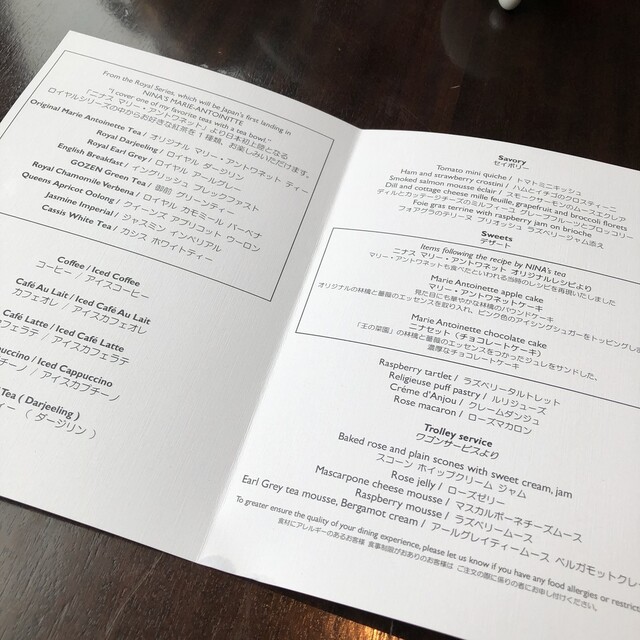 From the Royal Series, which will be Japan's first landing in
NINA'S MARIE-ANTOINITTE
"I cover one of my favorite teas with a tea bowl".
「ニナス マリー・アントワネット」より日本初上陸となる
ロイヤルシリーズの中からお好きな紅茶を1種類、お楽しみいただけます。
Original Marie Antoinette Tea / オリジナル マリー・アントワネット ティー
Royal Darjeeling / ロイヤル ダージリン
Royal Earl Grey / ロイヤル アールグレー
English Breakfast / イングリッシュ ブレックファスト
GOZEN Green Tea / 御前 グリーンティー
Royal Chamomile Verbena / ロイヤル カモミール バーベナ
Queens Apricot Oolong / クイーンズ アプリコット ウーロン
Jasmine Imperial / ジャスミン インペリアル
Cassis White Tea / カシス ホワイトティー
Coffee / Iced Coffee
コーヒー / アイスコーヒー
Café Au Lait / Iced Café Au Lait
カフェオレ / アイスカフェオレ
Café Latte / Iced Café Latte
カフェラテ / アイスカフェラテ
/ Iced Cappuccino
/ アイスカプチーノ
Tea ( Darjeeling )
ティー ( ダージリン )
Savory
セイボリー
Tomato mini quiche / トマトミニキッシュ
Ham and strawberry crostini / ハムとイチゴのクロスティーニ
Smoked salmon mousse éclair / スモークサーモンのムースエクレア
Dill and cottage cheese mille feuille, grapefruit and broccoli florets
ディルとカッテージチーズのミルフィーユ グレープフルーツとブロッコリー
Foie gras terrine with raspberry jam on brioche
フォアグラのテリーヌ ブリオッシュ ラズベリージャム添え
Sweets
デザート
Items following the recipe by NINA's tea
ニナス マリー・アントワネット オリジナルレシピより
マリー・アントワネットも食べたといわれる当時のレシピを再現いたしました
Marie Antoinette apple cake
マリー・アントワネットケーキ
見た目にも華やかな林檎のパウンドケーキ
オリジナルの林檎と薔薇のエッセンスを取り入れ、ピンク色のアイシングシュガーをトッピングし
Marie Antoinette chocolate cake
ニナセット（チョコレートケーキ）
「王の菜園」の林檎と薔薇のエッセンスをつかったジュレをサンドした、
濃厚なチョコレートケーキ
Raspberry tartlet / ラズベリータルトレット
Religieuse puff pastry / ルリジューズ
Créme d'Anjou / クレームダンジュ
Rose macaron / ローズマカロン
Trolley service
ワゴンサービスより
Baked rose and plain scones with sweet cream, jam
スコーン ホイップクリーム ジャム
Rose jelly / ローズゼリー
Mascarpone cheese mousse / マスカルポーネチーズムース
Raspberry mousse / ラズベリームース
Earl Grey tea mousse, Bergamot cream / アールグレイティームース ベルガモットクレ
To greater ensure the quality of your dining experience, please let us know if you have any food allergies or restric
食材にアレルギーのあるお客様 食事制限がおありのお客様は ご注文の際に係りの者にお申し付けください。